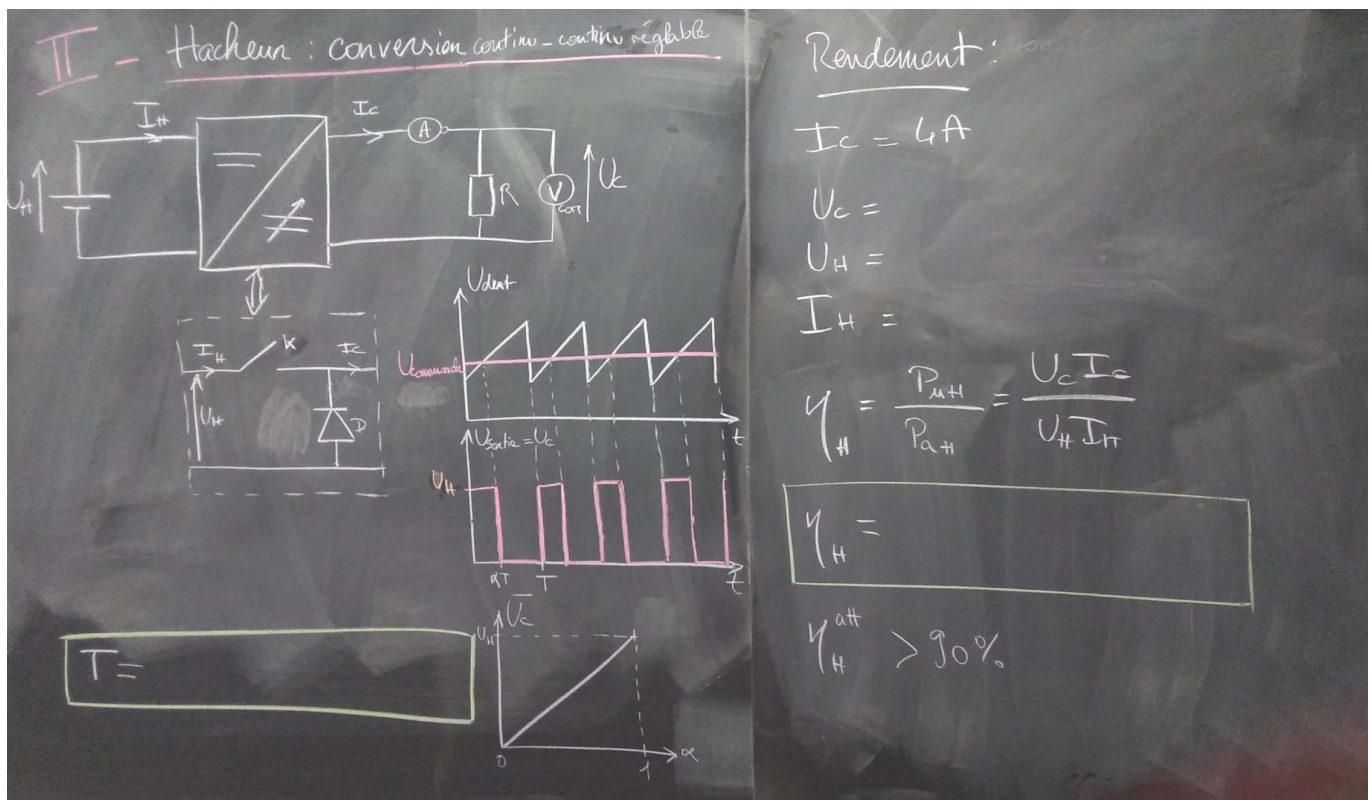 II - Hacheur : conversion continu - continu réglable
I_H
I_C
A
U_H
R
V
U_C
I_H
K
I_C
U_H
D
U_dent
U_commande
t
U_sortie = U_C
U_H
αT
T
t
T =
U̅_C
U_H
0
1
α
Rendement :
I_C = 4A
U_C =
U_H =
I_H =
η_H = P_uH / P_aH = U_C I_C / U_H I_H
η_H =
η_H^att > 90%